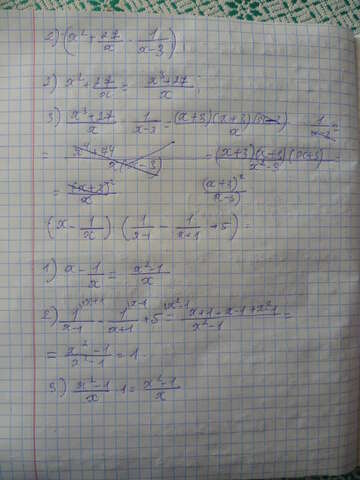 2) (x² + 27/x · 1/x-3)
2) x² + 27/x = x³+27/x;
3) x³+27/x · 1/x-3 = (x+3)(x+3)(x-3)/x · 1/x-3 =
= 2(x-3) = (x+3)(x-3)(x+3)/x²-9 =
= (x+3)²/x (x+3)²/x-3)
(x - 1/x) · (1/x-1 - 1/x+1 + 5) =
1) x - 1/x = x²-1/x
2) 1/x-1 - 1/x+1 + 5 = x+1-x-1+x²-1/x²-1 =
= x²-1/x²-1 = 1.
3) x²-1/x · 1 = x²-1/x